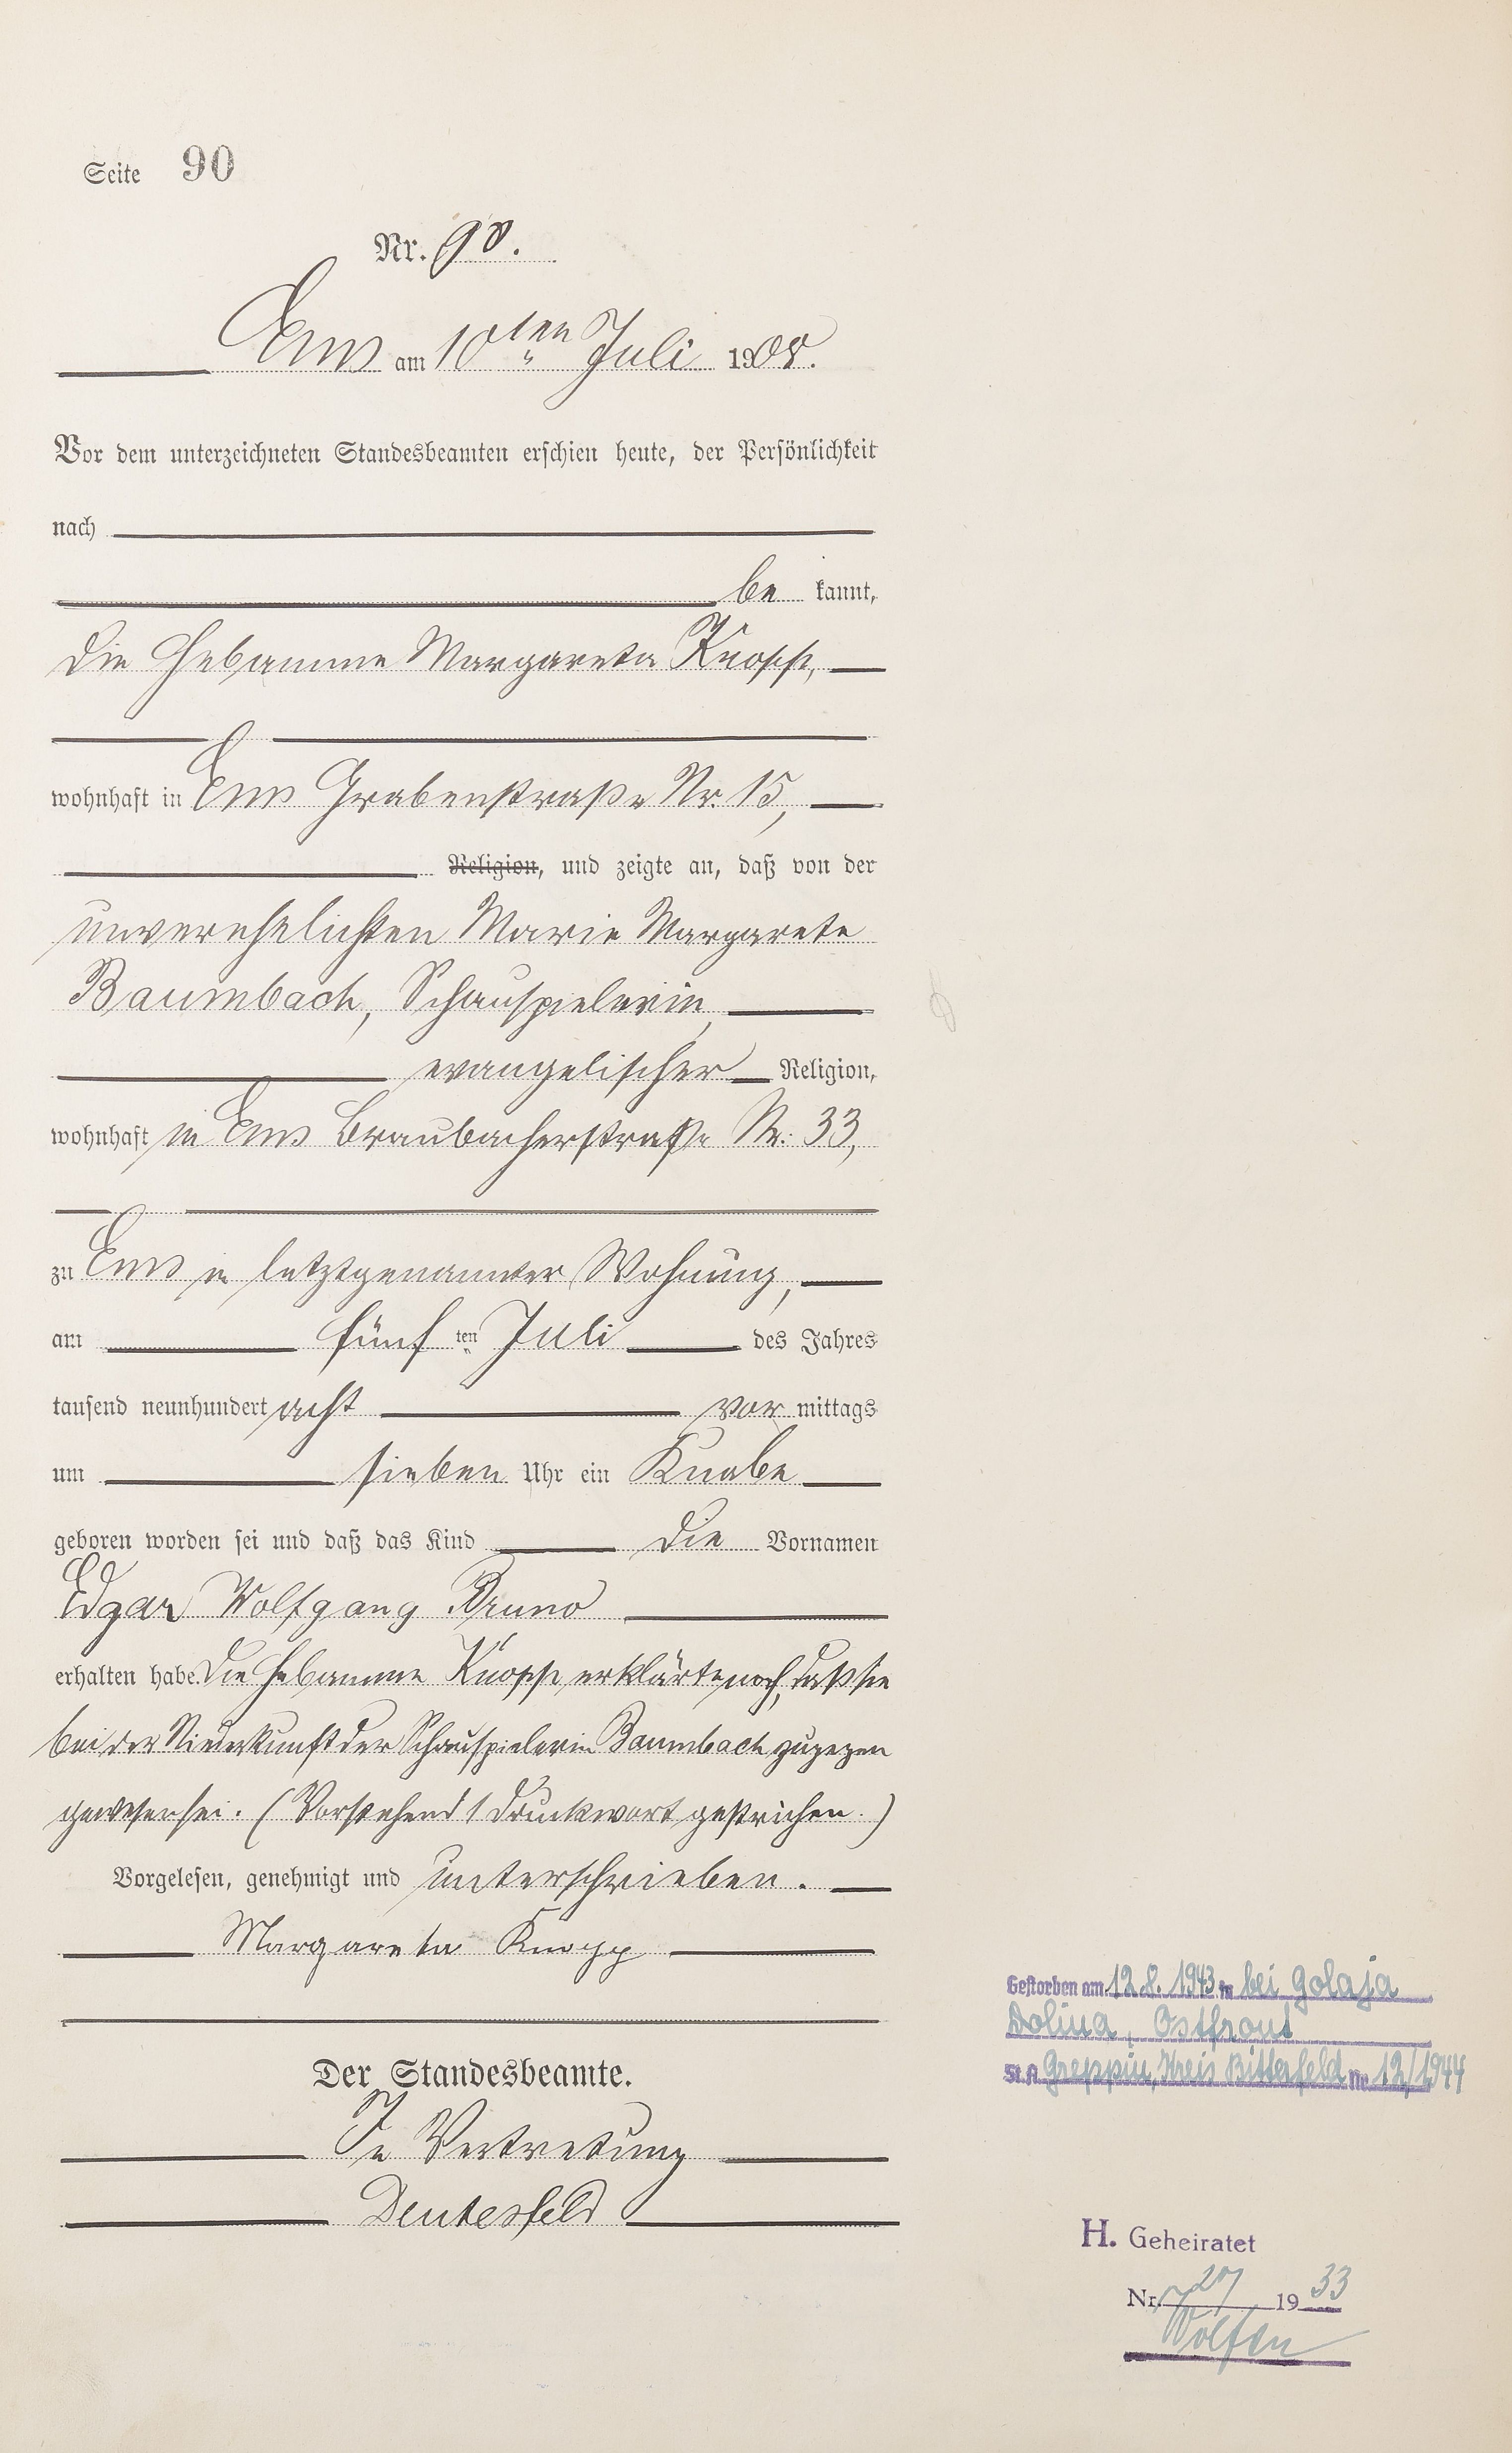 Seite 90
Nr. 90.
Ems am 10ten Juli 1908.
Vor dem unterzeichneten Standesbeamten erschien heute, der Persönlichkeit
nach
be kannt,
die Hebamme Margareta Knopp,
wohnhaft in Ems Grabenstraße Nr. 15,
Religion, und zeigte an, daß von der
unverehelichten Marie Margarete
Baumbach, Schauspielerin,
evangelischer Religion,
wohnhaft in Ems Braubacherstraße Nr. 33,
zu Ems in letztgenannter Wohnung,
am fünf ten Juli des Jahres
tausend neunhundert acht vor mittags
um sieben Uhr ein Knabe
geboren worden sei und daß das Kind die Vornamen
Edgar Wolfgang Bruno
erhalten habe. Die Hebamme Knopp erklärte noch, daß sie
bei der Niederkunft der Schauspielerin Baumbach zugegen
gewesen sei. (Vorstehend 1 Druckwort gestrichen.)
Vorgelesen, genehmigt und unterschrieben.
Margareta Knopp
Der Standesbeamte.
In Vertretung
Deutesfeld
Gestorben am 12.8.1943 in bei Golaja
Dolina, Ostfront
St.A. Greppin, Kreis Bitterfeld Nr. 12/1944
H. Geheiratet
Nr. 27 1933
Wolfen